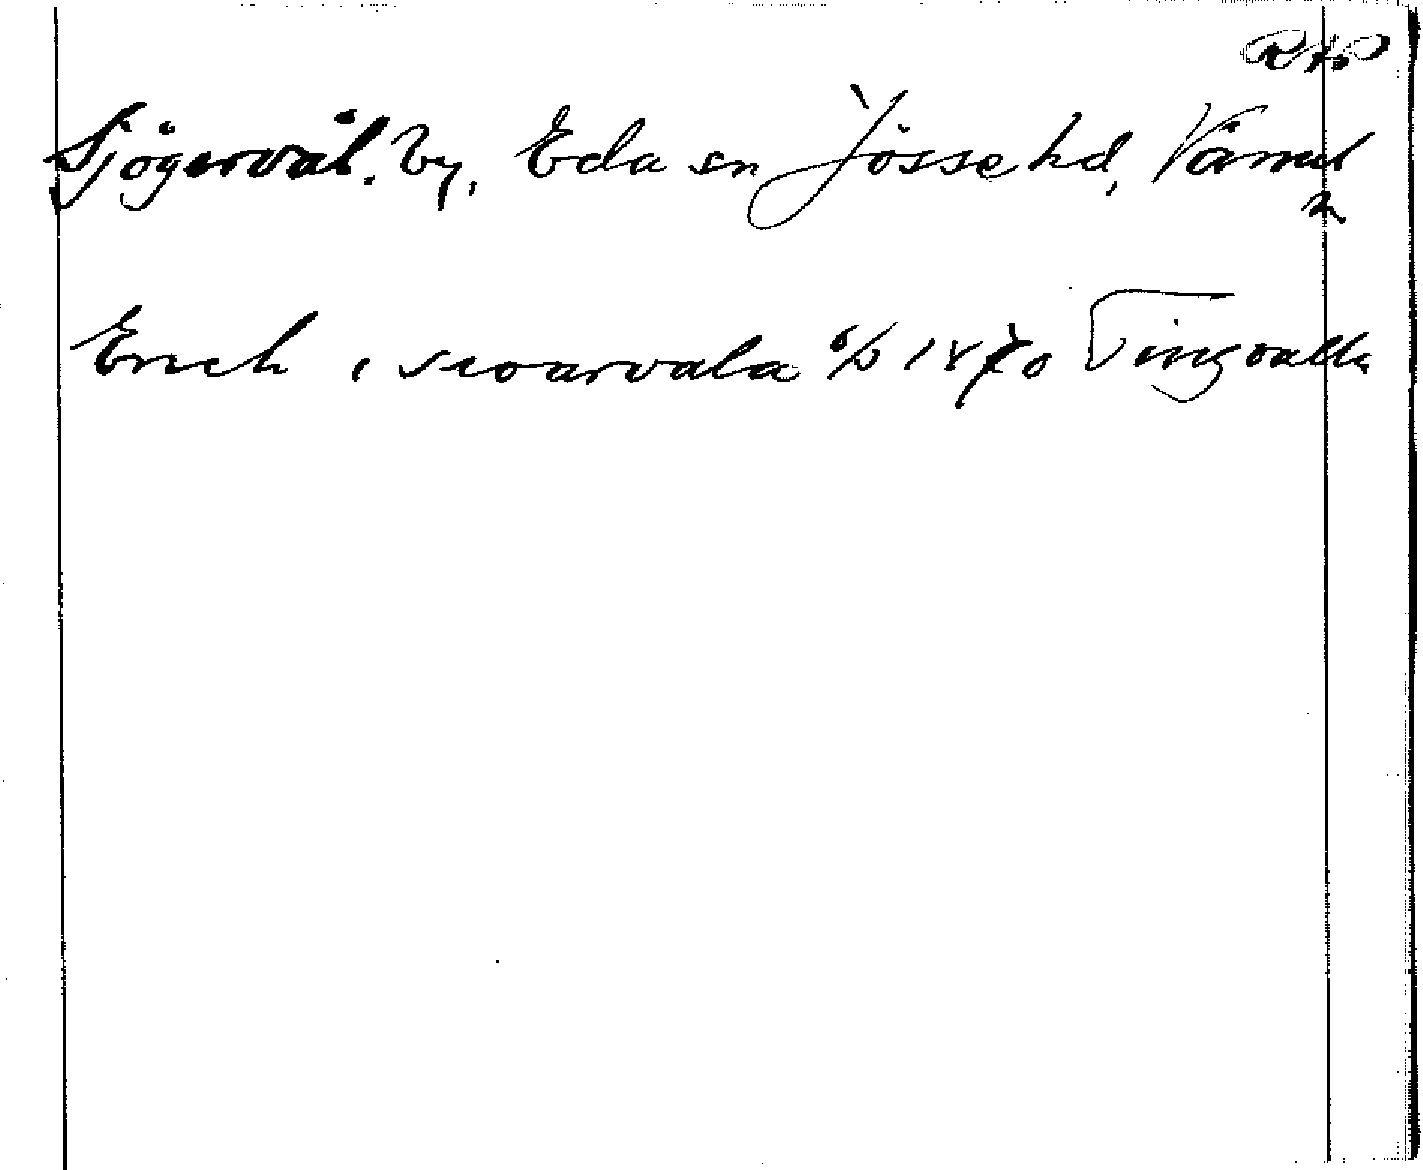 RAP
Sjögervål. by, Eda sn Jösse hd, Värml
Erich i scoarvala 6/5 1470 Tingvalla